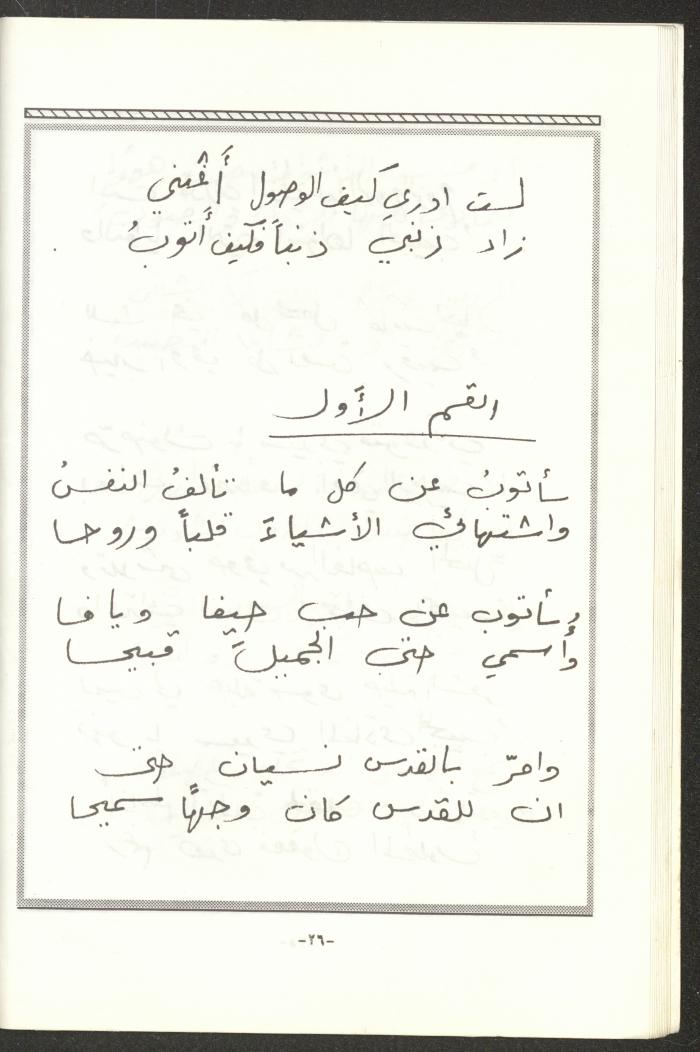 لست ادري كيف الوصول أَغثني
زاد ذنبي ذنباً فكيف أَتوبُ
القسم الأَول
سأتوبُ عن كل ما تألفُ النفسُ
واشتهائي الأشياءَ قلباً وروحا
وسأتوب عن حب حيفا ويافا
وأُسمي حتى الجميلَ قبيحا
وامرّ بالقدس نسيان حتى
ان للقدس كان وجهًا سميحا
-٢٦-